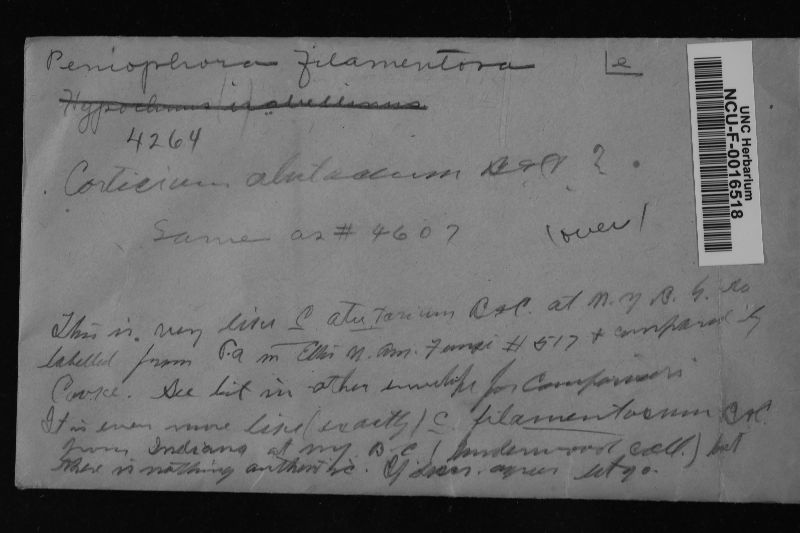 Peniophora filamentosa
e
Hypochnus isabellinus
4264
Corticium alutaceum B&C ?
Same as # 4607
(over)
This is very like C alutarium B&C. at N.Y.B.G. so
labelled from Pa in Ellis N. Am. Fungi # 517 & compared by
Cooke. See bit in other envelope for comparison
It is even more like (exactly) C. filamentosum B&C
from Indiana at my B.G. (Underwood coll.) but
there is nothing authentic. agrees let go.
UNC Herbarium
NCU-F-0016518